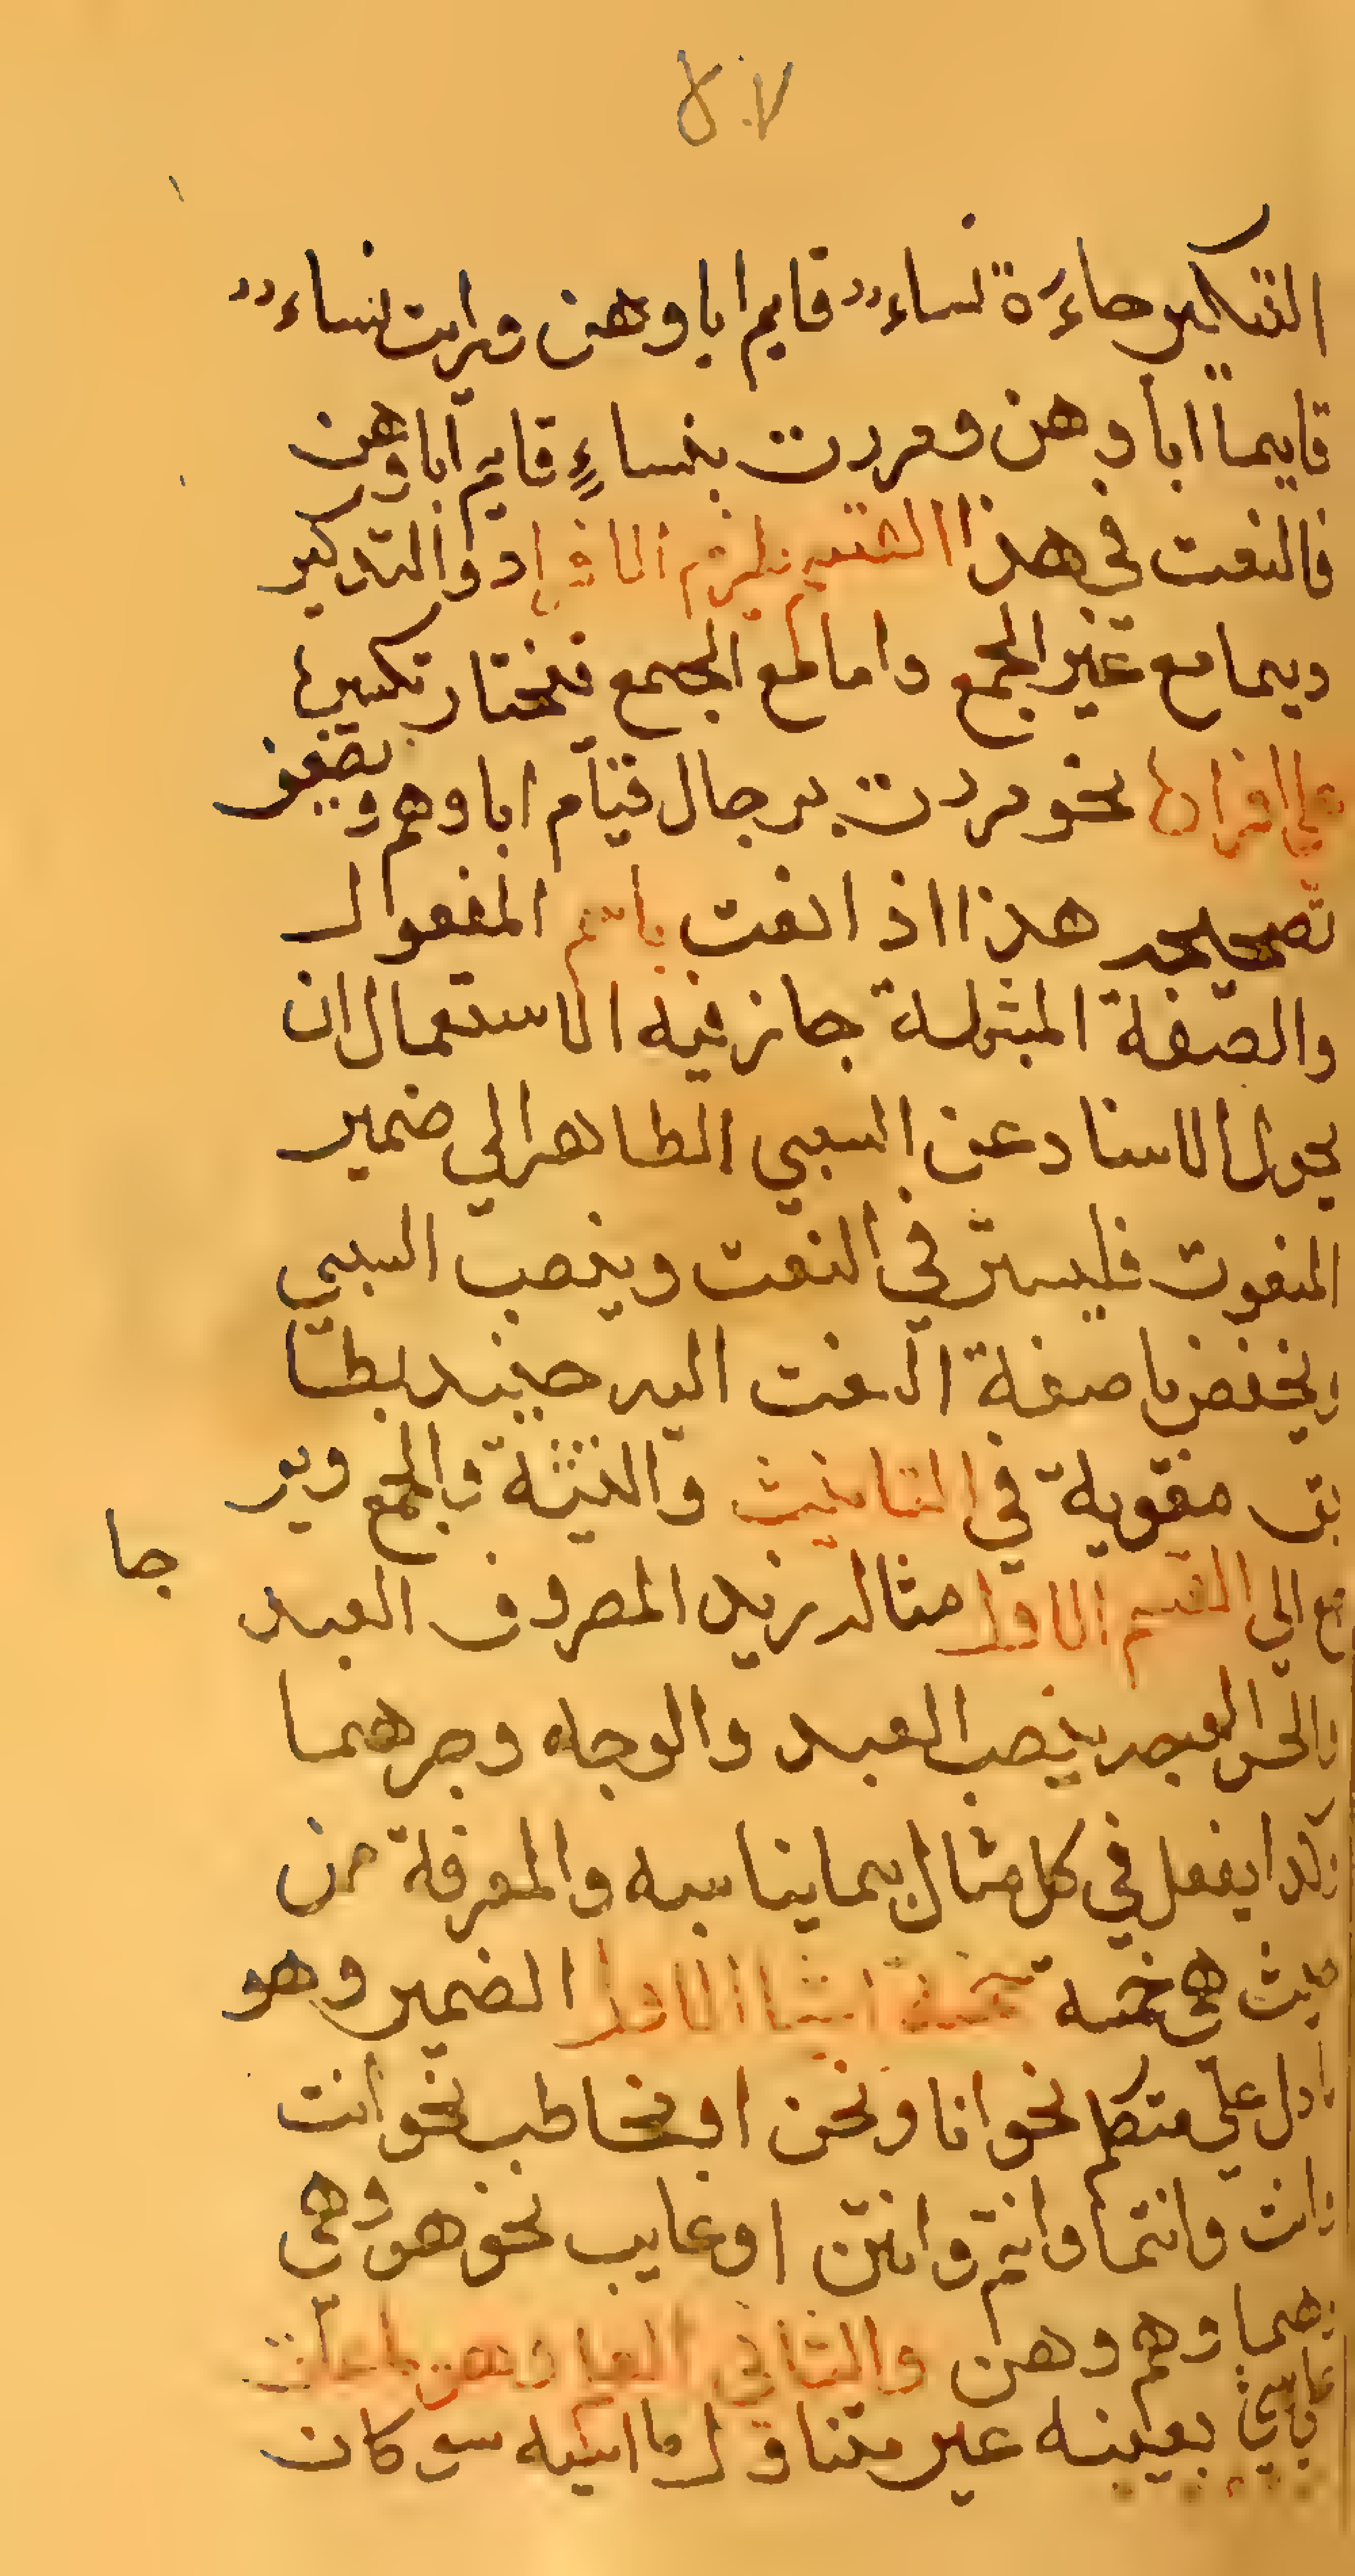 ٧٠٨
التنكير جاءة نساء قايم اباوهن ورايت نساء
قايما اباوهن ومررت بنساءٍ قايم اباوهن
فالنعت في هذا القسم يلزم الافراد والتذكير
ديما مع غير الجمع واما مع الجمع فيختار تكسيرها
علي افرادها نحو مررت برجال قيام اباوهم ويضعف
تصحيحه هذا اذا نعت باسم المفعول
والصفة المشبهة جاز فيه الاستعمال ان
يحول الاسناد عن السببي الظاهر الي ضمير
المنعوت فليستتر في النعت وينصب السببي
ويخفض باضفة النعت اليه حينيد يطا
بق منعوته في التانيث والتثنية والجمع وير
جع الي القسم الاول مثاله زيد المضروف العبد
جا
والحسن العبد بنصب العبد والوجه وجرهما
وكدا يفعل في كل مثال بما يناسبه والمعرفة من
حيث هي خمسة خمسة اشيا الاول الضمير وهو
ما دل علي متكلم نحو انا ونحن او مخاطب نحو انت
وانت وانتما وانتم وانتن او غايب نحو هو وهي
وهما وهم وهن والثاني العلم وهو ما علق
علي شي بعينه غير متناول ما اشبه سو كان